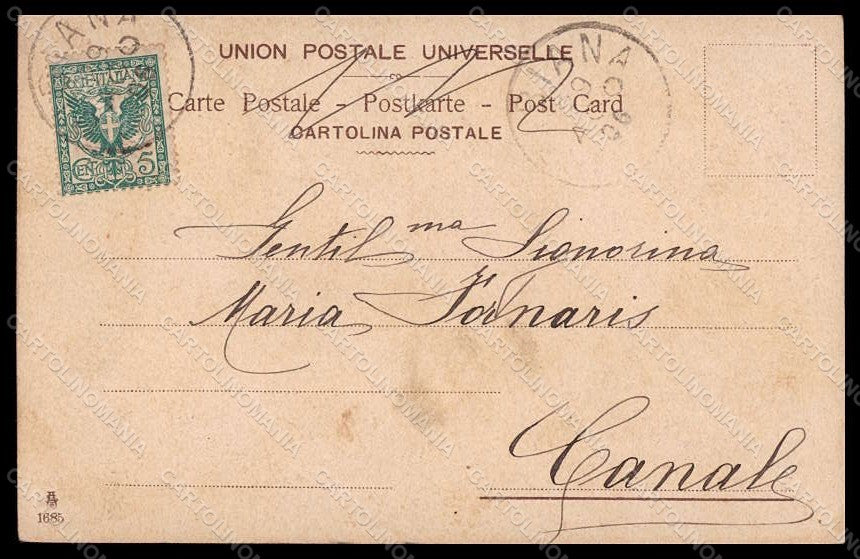 UNION POSTALE UNIVERSELLE
Carte Postale - Postkarte - Post Card
CARTOLINA POSTALE
POSTE ITALIANE
CENT. 5
Gentil ma Signorina
Maria Fornaris
Canale
1685
CARTOLINOMANIA